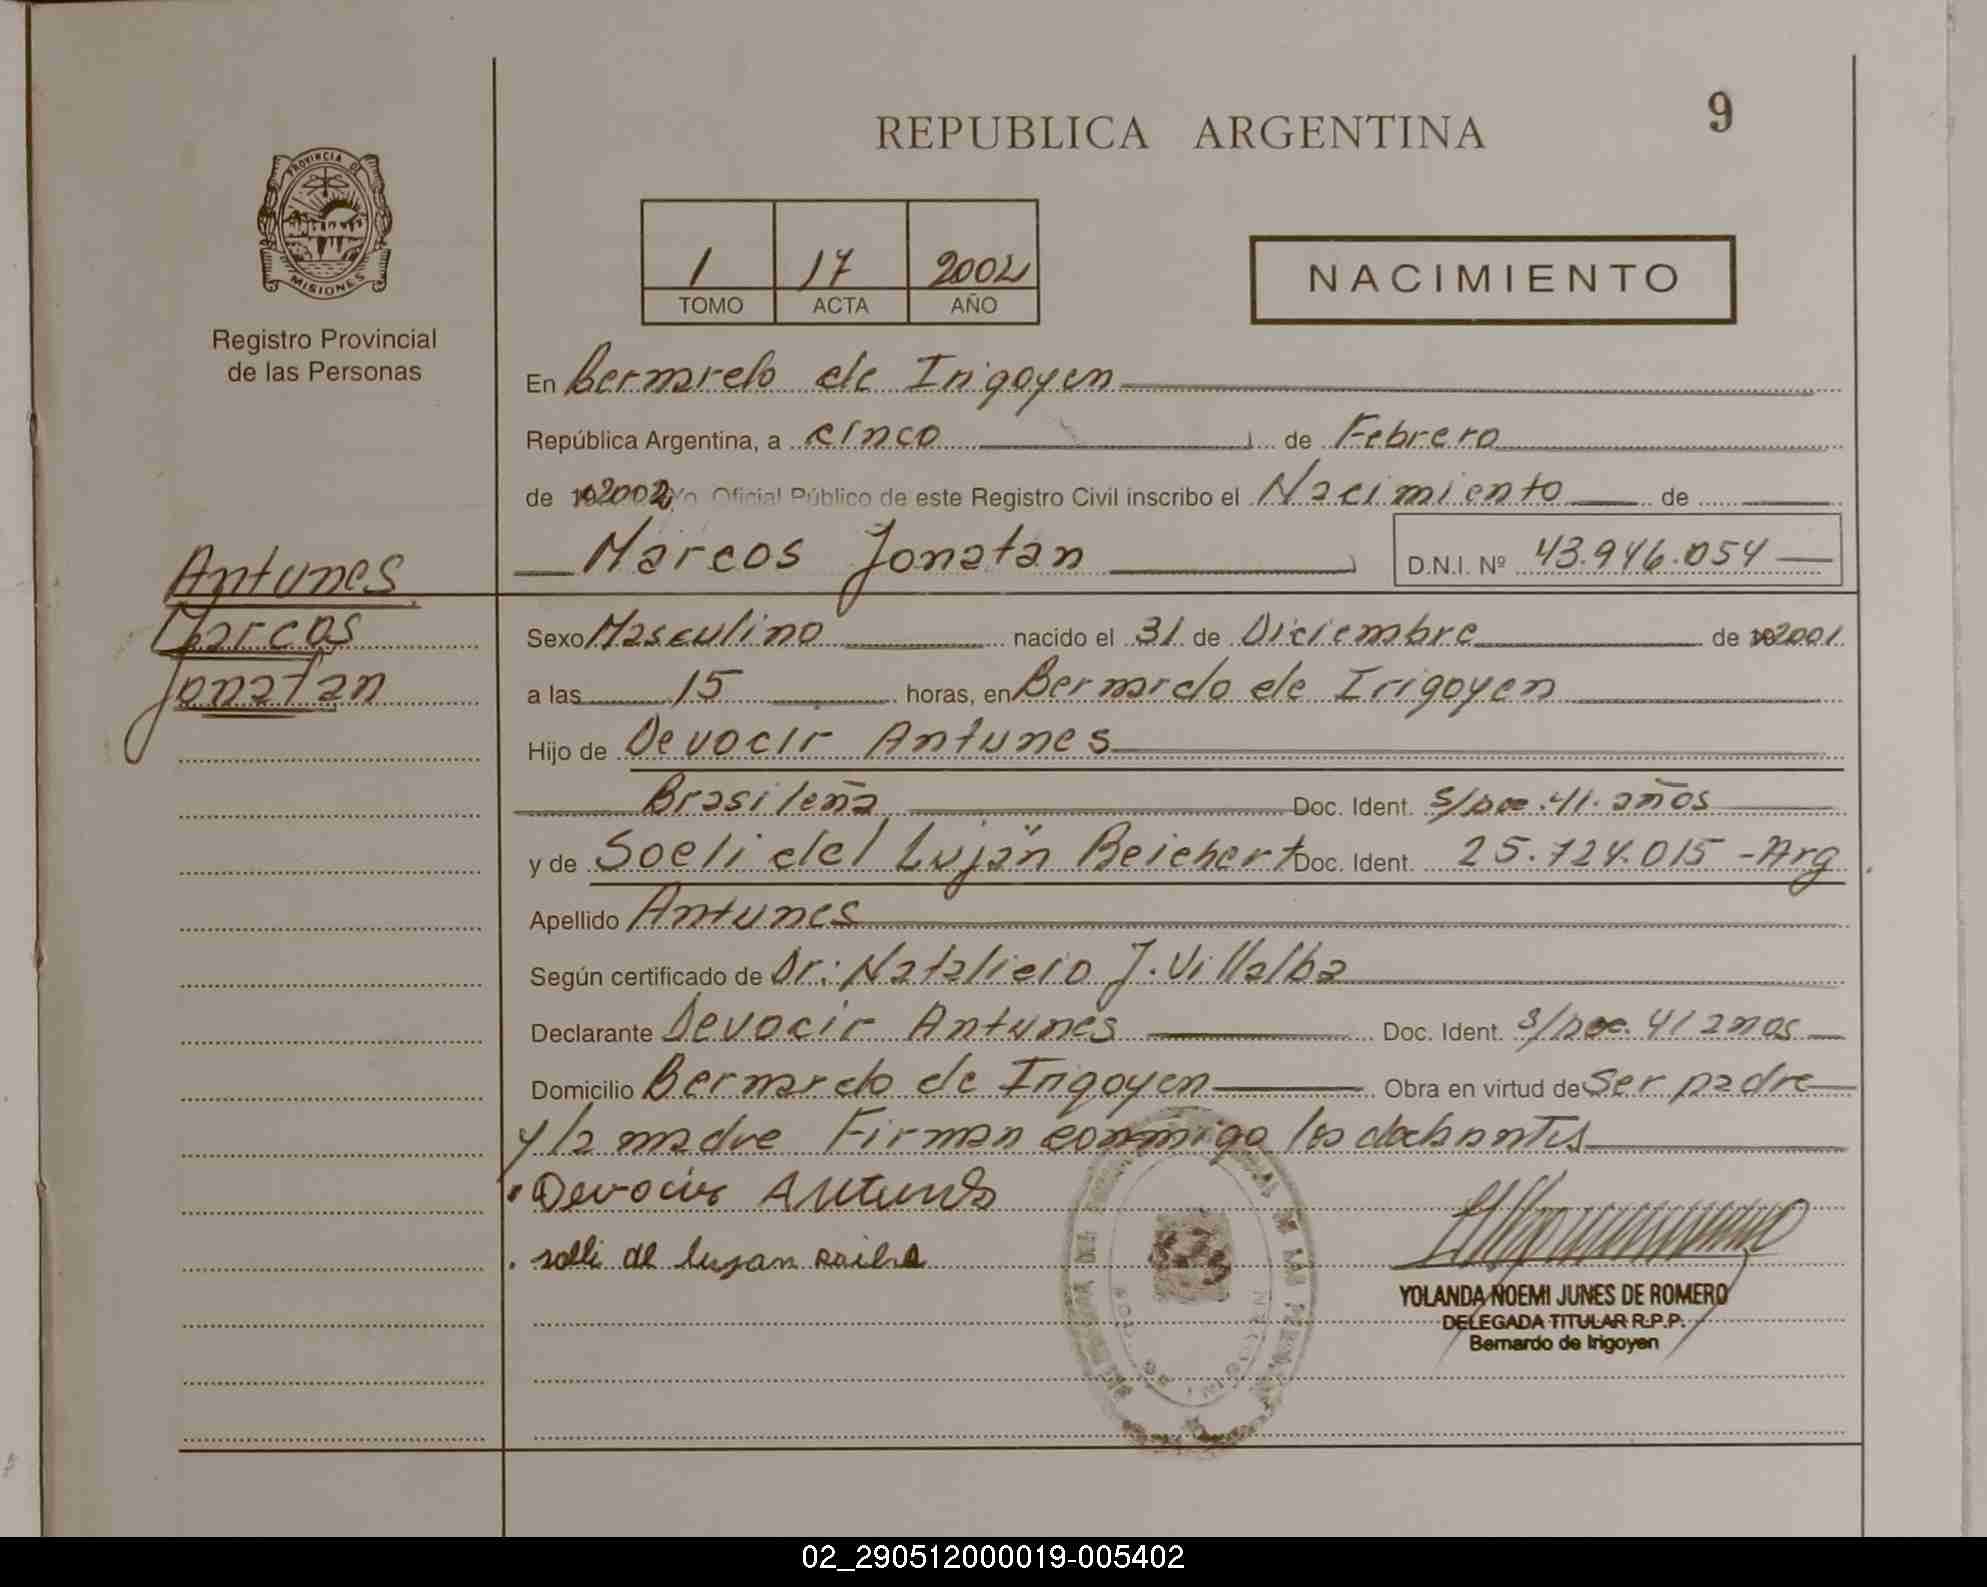 REPUBLICA ARGENTINA
9
PROVINCIA DE
MISIONES
Registro Provincial
de las Personas
1 17 2002
TOMO ACTA AÑO
NACIMIENTO
En Bernardo de Irigoyen
República Argentina, a cinco de Febrero
de 2002 Yo, Oficial Público de este Registro Civil inscribo el Nacimiento de
Marcos Jonatan D.N.I. Nº 43.946.054
Antunes
Marcos
Jonatan
Sexo Masculino nacido el 31 de Diciembre de 2001
a las 15 horas, en Bernardo de Irigoyen
Hijo de Devocir Antunes
Brasileña Doc. Ident. s/doc. 41. años
y de Soeli del Luján Reichert Doc. Ident. 25.724.015 - Arg
Apellido Antunes
Según certificado de Dr: Natalicio J. Villalba
Declarante Devocir Antunes Doc. Ident. s/doc. 41 años
Domicilio Bernardo de Irigoyen Obra en virtud de ser padre
y la madre Firman conmigo los declarantes
Devocir Antunes
solli de lujan
YOLANDA NOEMI JUNES DE ROMERO
DELEGADA TITULAR R.P.P.
Bernardo de Irigoyen
02_290512000019-005402